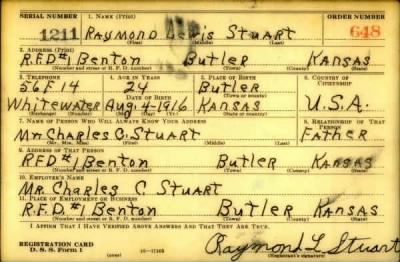 SERIAL NUMBER 1. NAME (Print) ORDER NUMBER
1211 RAYMOND Lewis STUART 648
(First) (Middle) (Last)
2. ADDRESS (Print)
R.F.D.#1 Benton Butler Kansas
(Number and street or R. F. D. number) (Town) (County) (State)
3. TELEPHONE 4. AGE IN YEARS 5. PLACE OF BIRTH 6. COUNTRY OF CITIZENSHIP
56F14 24 Butler
DATE OF BIRTH (Town or county)
Whitewater Aug. 4-1916 Kansas U.S.A.
(Exchange) (Mo.) (Day) (Yr.) (State or country)
7. NAME OF PERSON WHO WILL ALWAYS KNOW YOUR ADDRESS 8. RELATIONSHIP OF THAT PERSON
Mr. Charles C. Stuart Father
(Mr., Mrs., Miss) (First) (Middle) (Last)
9. ADDRESS OF THAT PERSON
RFD #1 Benton Butler Kansas
(Number and street or R. F. D. number) (Town) (County) (State)
10. EMPLOYER'S NAME
Mr. Charles C. Stuart
11. PLACE OF EMPLOYMENT OR BUSINESS
R.F.D.#1 Benton Butler Kansas
(Number and street or R. F. D. number) (Town) (County) (State)
I AFFIRM THAT I HAVE VERIFIED ABOVE ANSWERS AND THAT THEY ARE TRUE.
REGISTRATION CARD
D. S. S. FORM 1 (over) Raymond L Stuart
(Registrant's signature)